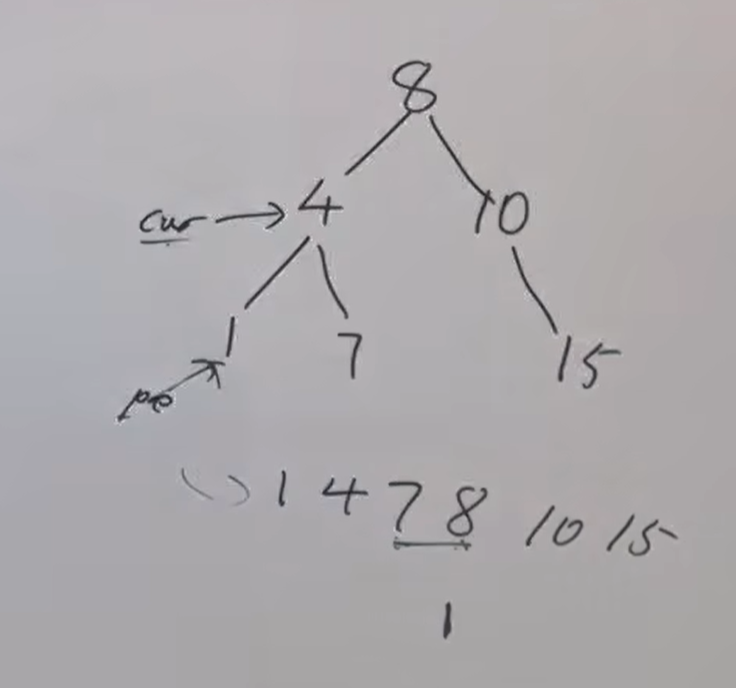 8
cur → 4 10
1 7 15
pre
( ) 1 4 7 8 10 15
1